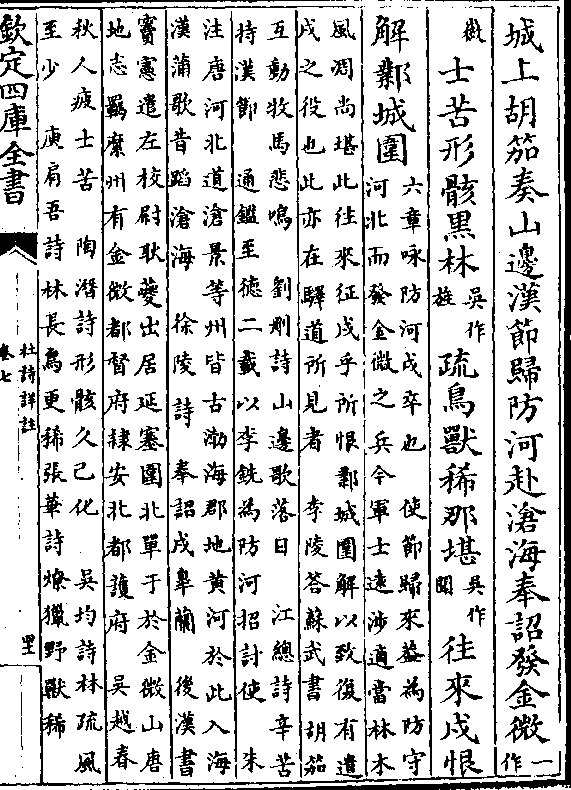 城上胡笳奏山邊漢節歸防河赴滄海奉詔發金微一作
微士苦形骸黒林吳作旌疏鳥獸稀那堪吳作聞往來戍恨
解鄴城圍六章咏防河戍卒也 使節歸來葢為防守
河北而發金微之兵今軍士逺涉適當林木
風凋尚堪此往來征戍乎所恨鄴城圍解以致復有遣
戍之役也此亦在驛道所見者 李陵答蘇武書胡笳
互動牧馬悲鳴 劉刪詩山邊歌落日 江總詩辛苦
持漢節 通鑑至德二載以李銑為防河招討使 朱
注唐河北道滄景等州皆古渤海郡地黄河於此入海
漢蒲歌昔蹈滄海 徐陵詩 奉詔戍臯蘭 後漢書
竇憲遣左校尉耿夔出居延塞圍北單于於金微山唐
地志羈縻州有金微都督府隸安北都護府 吳越春
秋人疲士苦 陶潛詩形骸久已化 吳均詩林疏風
至少 庾肩吾詩林長鳥更稀張華詩燎獵野獸稀
欽定四庫全書
杜詩詳註
卷七